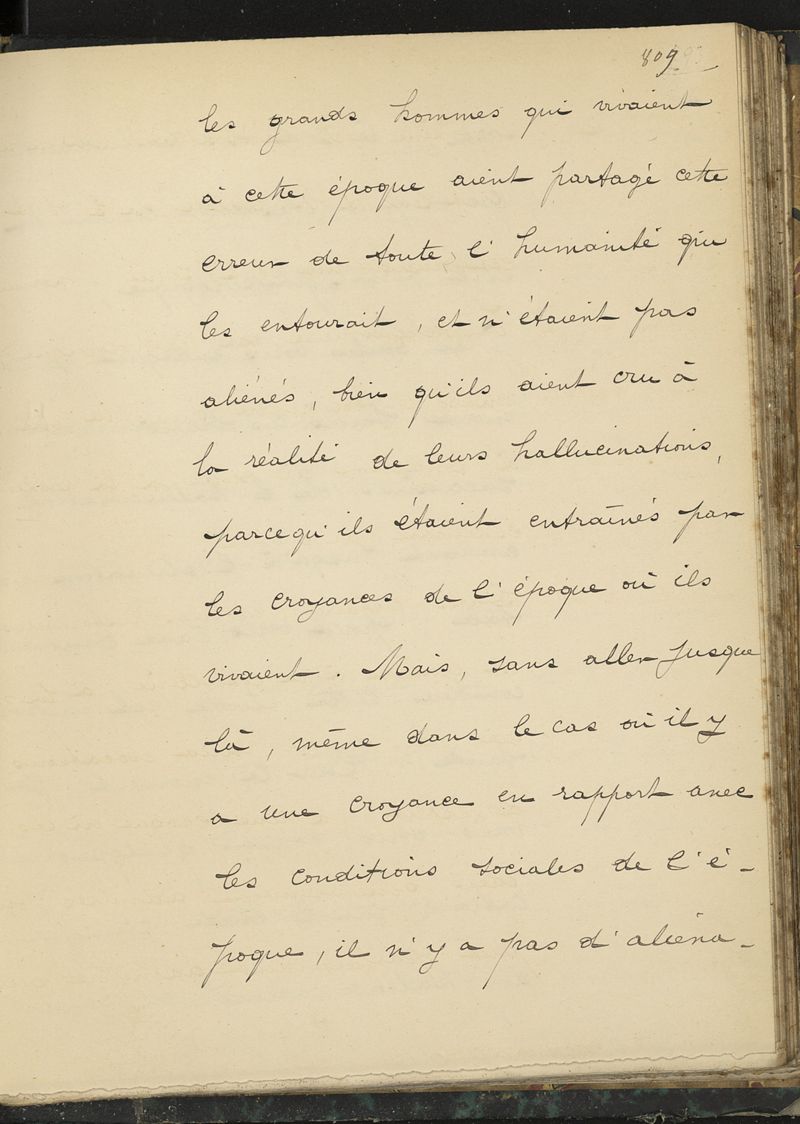 809
les grands hommes qui vivaient
à cette époque aient partagé cette
erreur de toute l'humanité qui
les entourait, et n'étaient pas
aliénés, bien qu'ils aient cru à
la réalité de leurs hallucinations,
parcequ'ils étaient entraînés par
les croyances de l'époque où ils
vivaient. Mais, sans aller jusque
là, même dans le cas où il y
a une croyance en rapport avec
les conditions sociales de l'é-
poque, il n'y a pas d'aliéna-